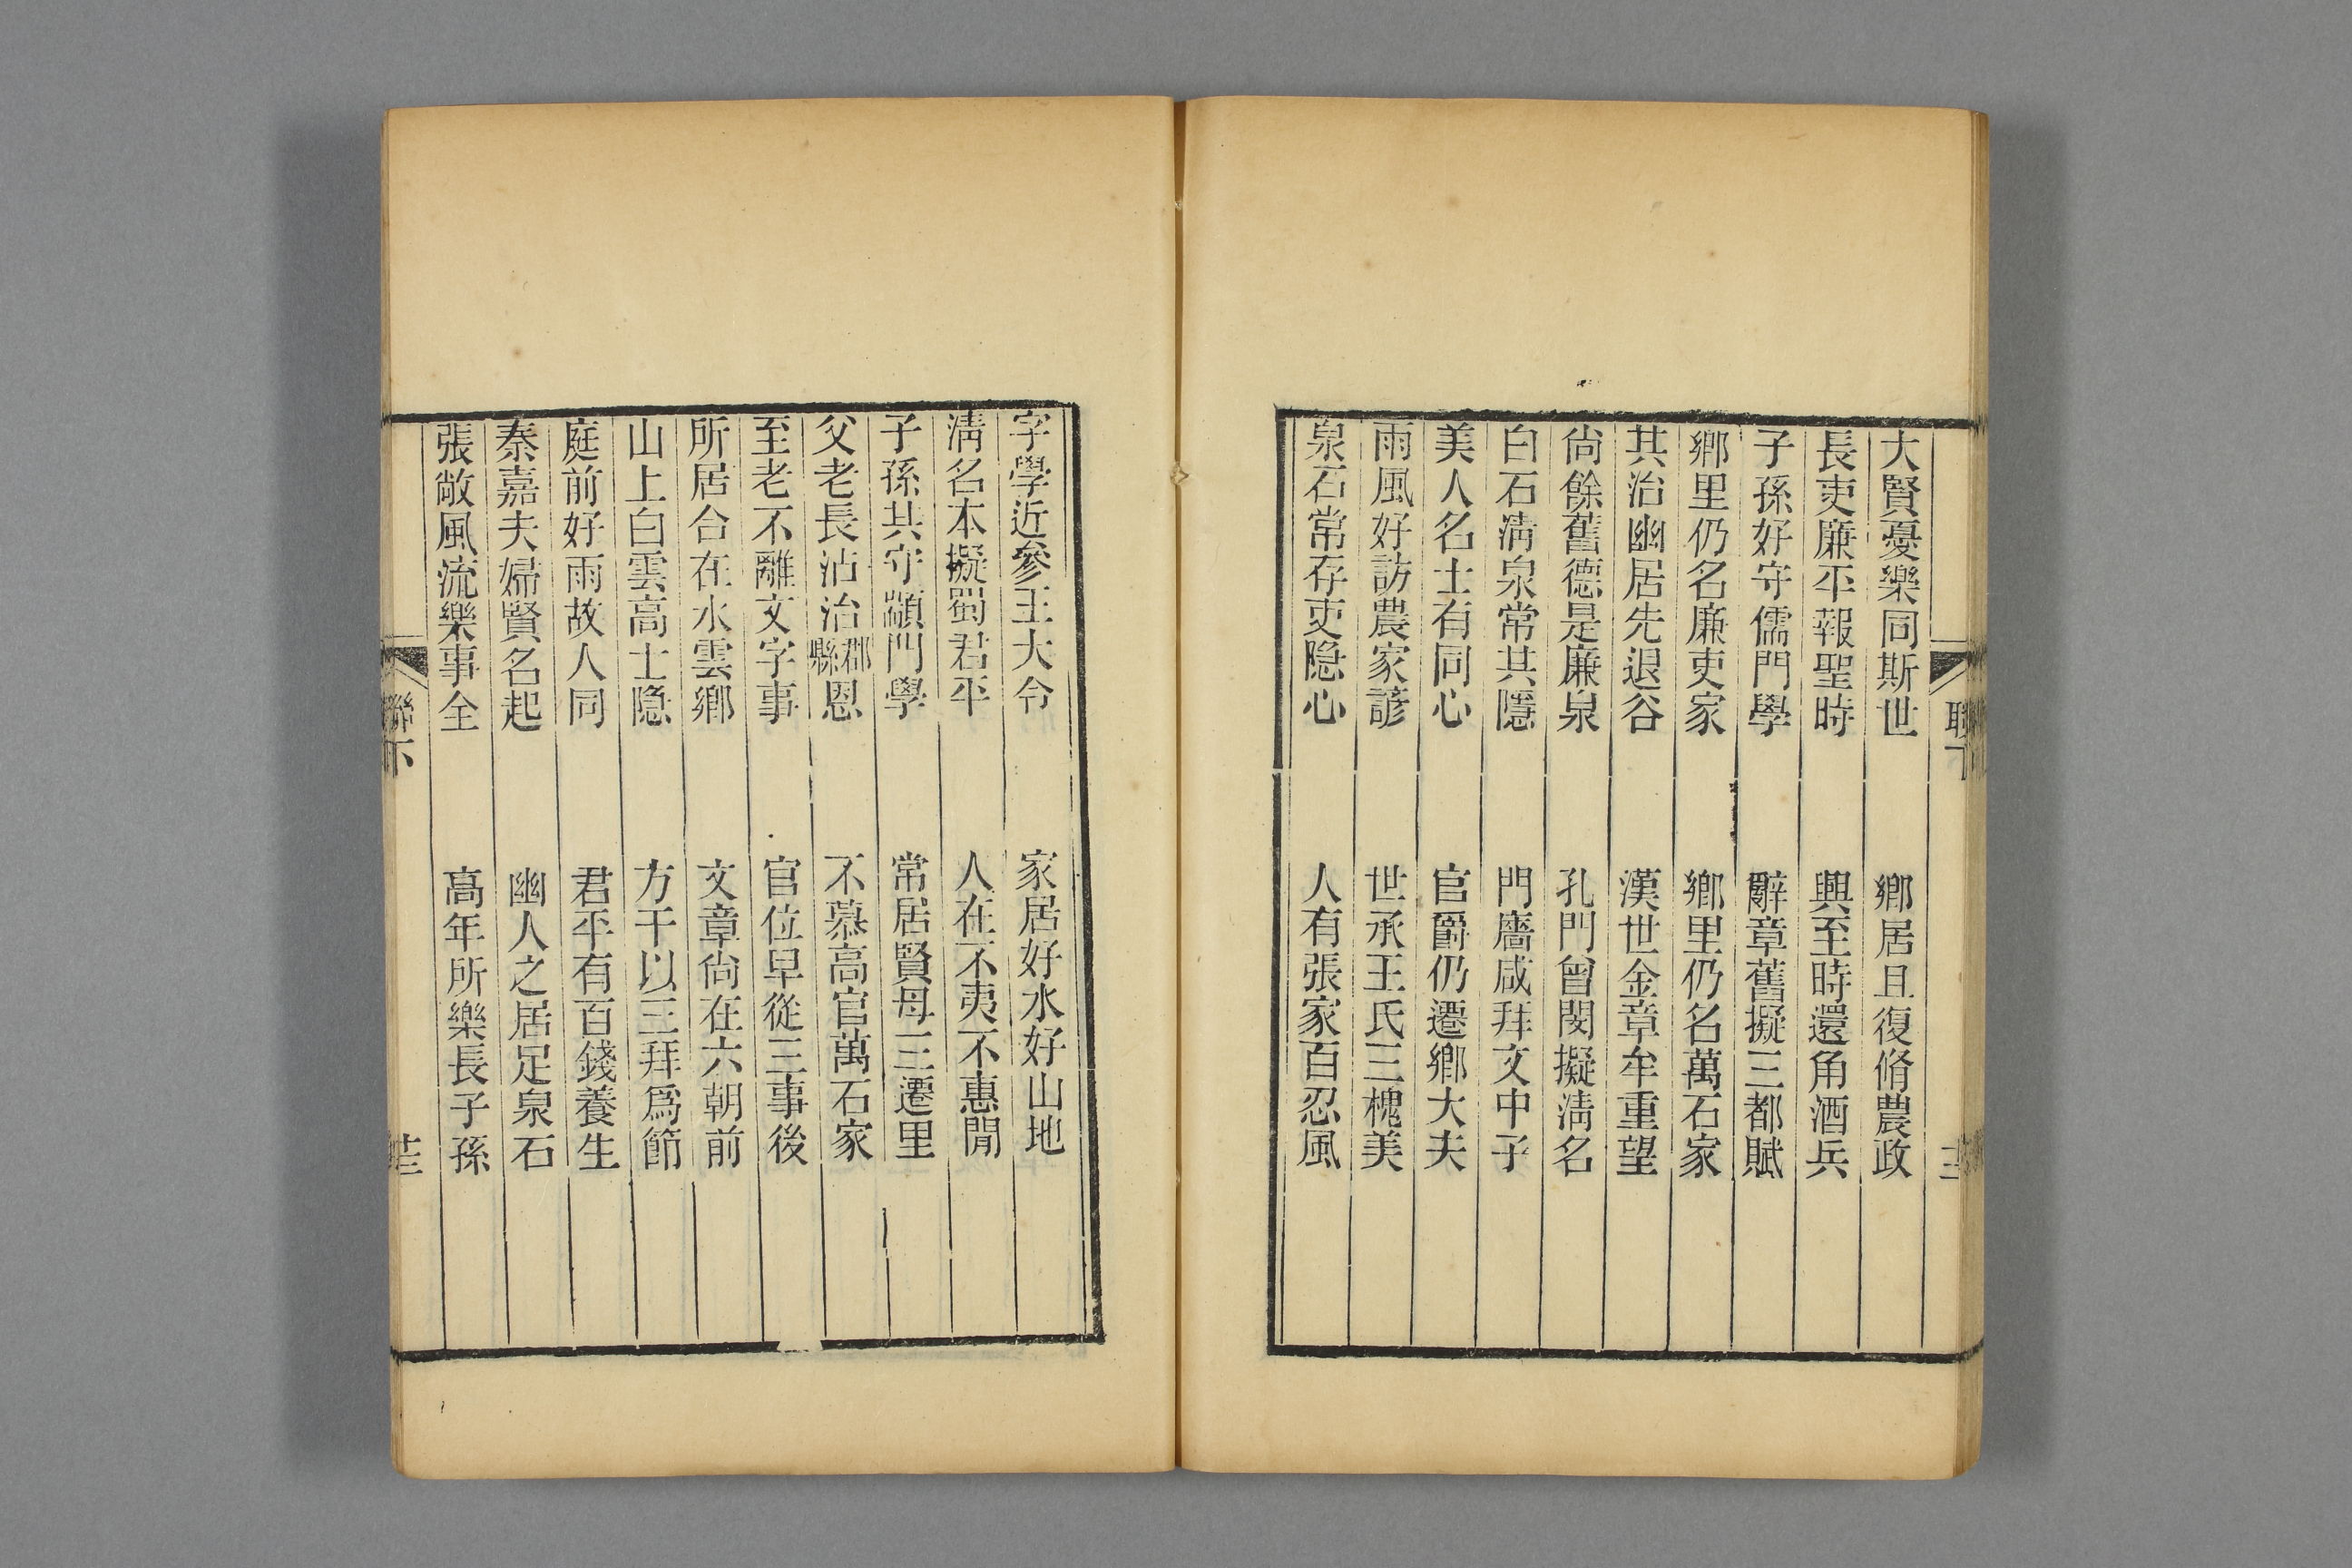 大賢憂樂同斯世　鄉居且復脩農政
長吏廉平報聖時　興至時還角酒兵
子孫好守儒門學　辭章舊擬三都賦
鄉里仍名廉吏家　鄉里仍名萬石家
其治幽居先退谷　漢世金章牟重望
尙餘舊德是廉泉　孔門曾閔擬淸名
白石淸泉常共隱　門牆咸拜文中子
美人名士有同心　官爵仍遷鄉大夫
雨風好訪農家諺　世承王氏三槐美
泉石常存吏隐心　人有張家百忍風
字學近參王大令　家居好水好山地
淸名本擬蜀君平　人在不夷不惠閒
子孫共守顓門學　常居賢母三遷里
父老長沾治郡縣恩　不慕高官萬石家
至老不離文字事　官位早從三事後
所居合在水雲鄉　文章尙在六朝前
山上白雲高士隐　方干以三拜爲節
庭前好雨故人同　君平有百錢養生
秦嘉夫婦賢名起　幽人之居足泉石
張敞風流樂事全　高年所樂長子孫
聯下